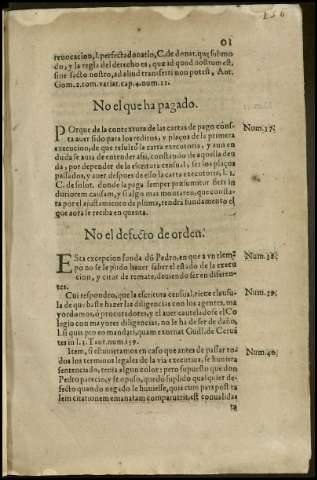 01
reuocacion, l. perfecta donatio, C. de donat. quę submo
do, y la regla del derecho es, quæ id quod nostrum est,
sine facto nostro, ad aliud transferri non potest, Ant.
Gom. 2. tom. variar. cap. 4. num. 11.
No el que ha pagado.
POrque de la contextura de las cartas de pago cõsta
auer sido para los reditos, y plaços de la primera
execucion, de que resultò la carta executoria, y aun en
duda se auia de entender assi, constando de aquella deu
da, por depender de la escritura censual, ser los plaços
passados, y auer despues de ello la carta executoria, l. 1.
C. de solut. donde la paga semper præsumitur fieri in
duriorem causam, y si algo mas montaren, que consta-
ra por el ajustamiento de pluma, tendra fundamento el
que aora se reciba en quenta.
Num. 37.
No el defecto de orden.
ESta excepcion funda dõ Pedro, en que a vn tiem-
po no se le pudo hazer saber el estado de la execu
cion, y citar de remate, deuiendo ser en diferen-
tes.
Num. 38.
Cui respondeo, que la escritura censual, tiene clausu-
la de que baste hazer las diligencias con los agentes, ma
yordomos, ò procuradores, y el auer cautela desse el Co
legio con mayores diligencias, no le ha de ser de daño,
l. si quis pro eo mandati, quam exornat Gudl. de Cerua
tes in l. 3. Taur. num. 159.
Num. 39.
Item, si estuuieramos en caso que antes de passar to-
dos los terminos legales de la via executiua, se huuiera
sentenciado, tenia algun color: pero supuesto que don
Pedro parecio, y se opuso, quedò suplido qualquier de-
fecto quando negado le huuiesse, quia cum pars post ta
lem citationem emanatam comparuerit, est conualida
ta
Num. 40.